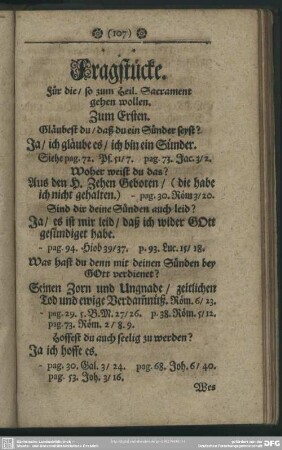 (107)
Fragstücke.
Für die/ so zum Heil. Sacrament
gehen wollen.
Zum Ersten.
Gläubest du/ daß du ein Sünder seyst?
Ja/ ich gläube es/ ich bin ein Sünder.
Siehe pag. 72. Pl. 51/ 7. pag. 73. Jac. 3/ 2.
Woher weist du das?
Aus den H. Zehen Geboten/ (die habe
ich nicht gehalten.) - pag. 30. Röm 3/ 20.
Sind dir deine Sünden auch leid?
Ja/ es ist mir leid/ daß ich wider GOtt
gesündiget habe.
- pag. 94. Hiob 39/ 37. p. 93. Luc. 15/ 18.
Was hast du denn mit deinen Sünden bey
GOtt verdienet?
Seinen Zorn und Ungnade/ zeitlichen
Tod und ewige Verdamnüß. Röm. 6/ 23.
- pag. 29. 5. B. M. 27/ 26. p. 38. Röm. 5/ 12.
pag. 73. Röm. 2/ 8. 9.
Hoffest du auch seelig zu werden?
Ja ich hoffe es.
- pag. 30. Gal. 3/ 24. pag. 68. Joh. 6/ 40.
pag. 53. Joh. 3/ 16.
Wes